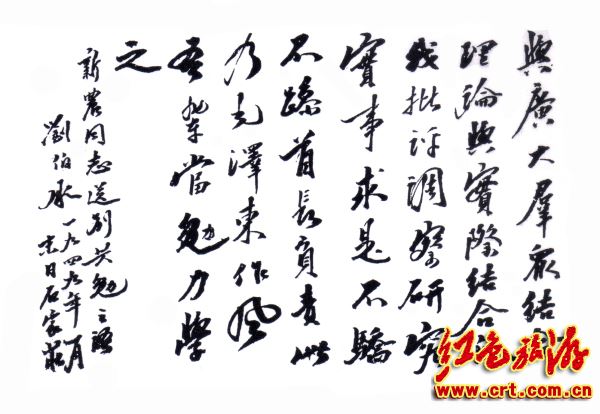 與廣大羣衆結
理論與實際結合
我批評調察研究
實事求是不驕
不躁首長負責此
乃毛澤東作風
吾輩當勉力學
之
新農同志送别共勉之語
劉伯承一九四九年一月
末日石家莊
红色旅游
www.crt.com.cn